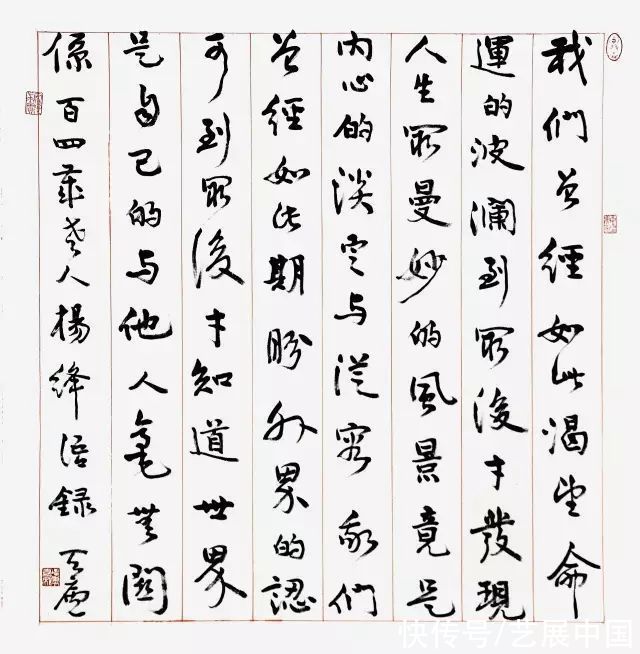 我們曾經如此渴望命
運的波瀾到最後才發現
人生最曼妙的風景竟是
内心的淡定与從容我們
曾經如此期盼外界的認
可到最後才知道世界
是自己的与他人毫無關
係百四歲老人楊絳語録
快传号/艺展中国